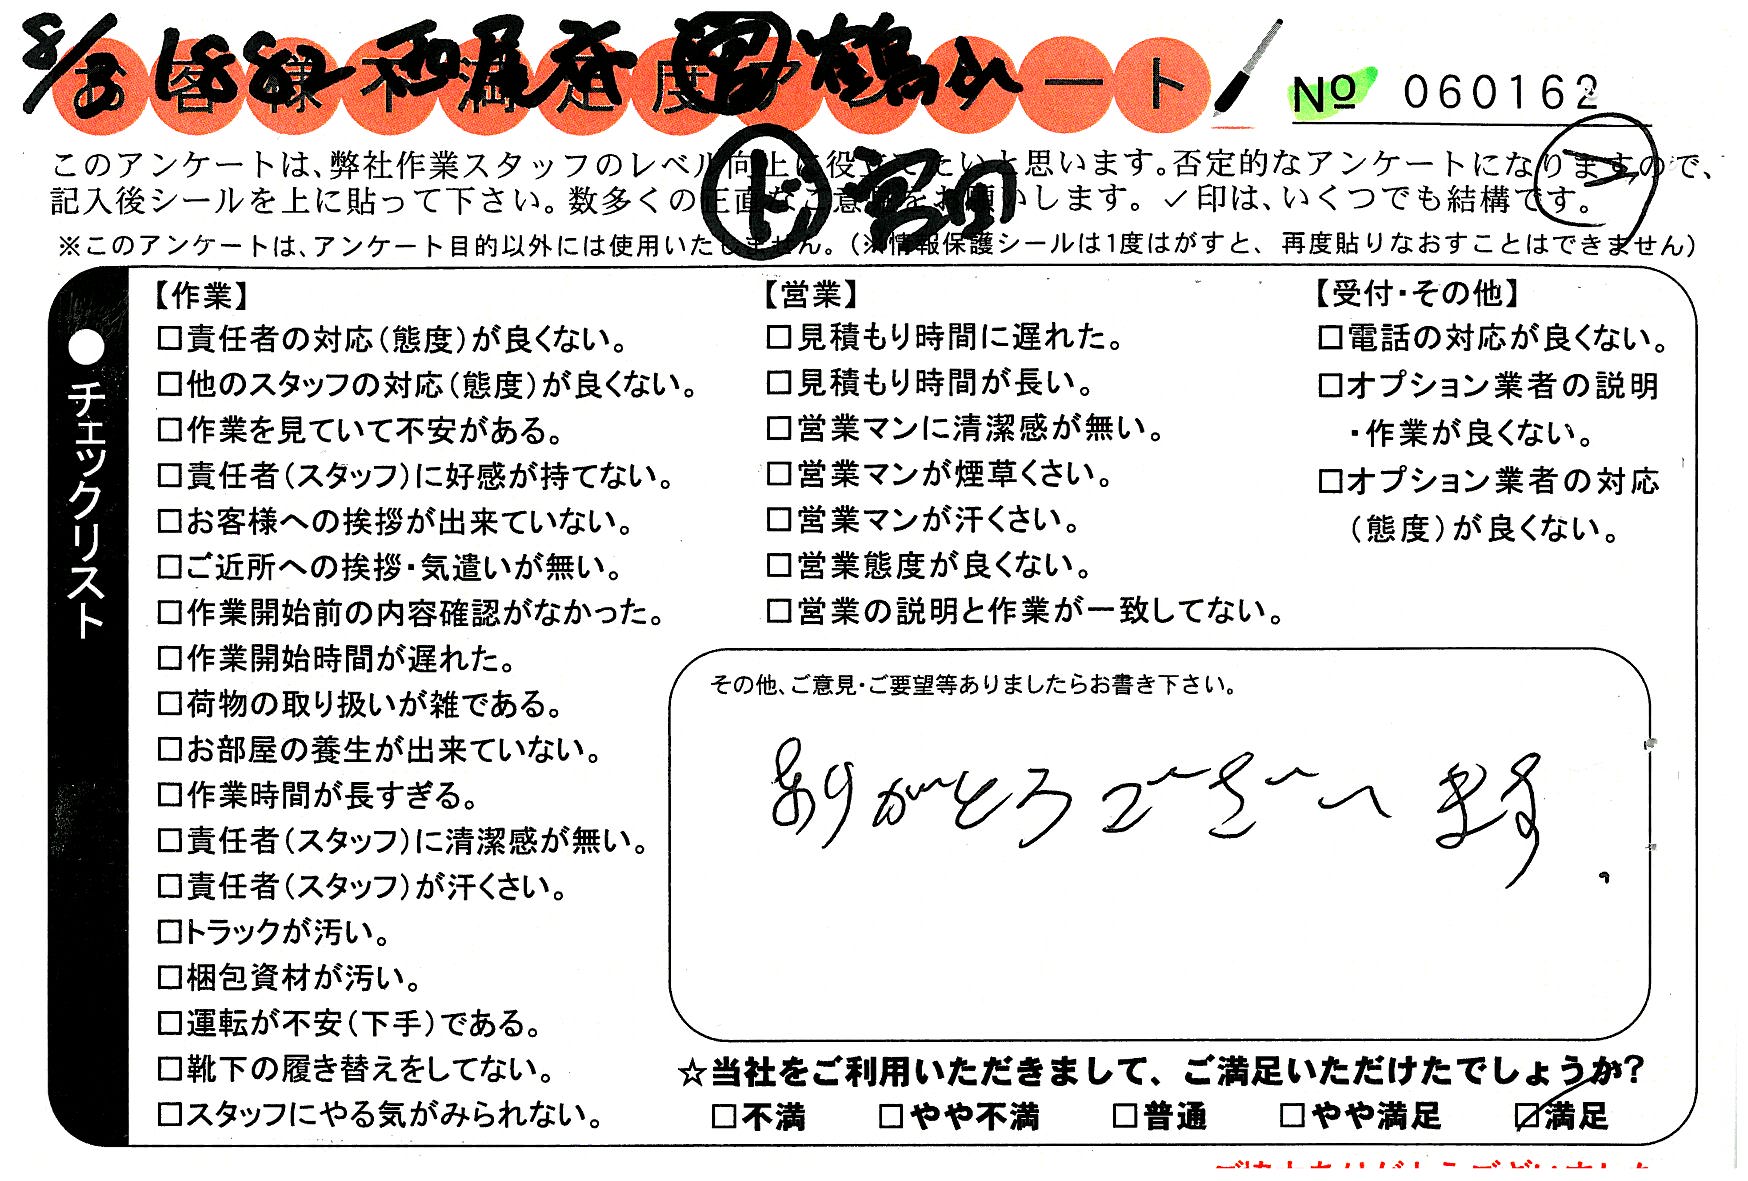 8/3 1882 和尾奈 鶴山
お客様不満足度アンケート
№ 060162
ド 宮田
このアンケートは、弊社作業スタッフのレベル向上に役立てたいと思います。否定的なアンケートになりますので、
記入後シールを上に貼って下さい。数多くの正直なご意見をお願いします。✓印は、いくつでも結構です。
※このアンケートは、アンケート目的以外には使用いたしません。(※情報保護シールは1度はがすと、再度貼りなおすことはできません)
●チェックリスト
【作業】
□責任者の対応(態度)が良くない。
□他のスタッフの対応(態度)が良くない。
□作業を見ていて不安がある。
□責任者(スタッフ)に好感が持てない。
□お客様への挨拶が出来ていない。
□ご近所への挨拶・気遣いが無い。
□作業開始前の内容確認がなかった。
□作業開始時間が遅れた。
□荷物の取り扱いが雑である。
□お部屋の養生が出来ていない。
□作業時間が長すぎる。
□責任者(スタッフ)に清潔感が無い。
□責任者(スタッフ)が汗くさい。
□トラックが汚い。
□梱包資材が汚い。
□運転が不安(下手)である。
□靴下の履き替えをしてない。
□スタッフにやる気がみられない。
【営業】
□見積もり時間に遅れた。
□見積もり時間が長い。
□営業マンに清潔感が無い。
□営業マンが煙草くさい。
□営業マンが汗くさい。
□営業態度が良くない。
□営業の説明と作業が一致してない。
【受付・その他】
□電話の対応が良くない。
□オプション業者の説明
・作業が良くない。
□オプション業者の対応
(態度)が良くない。
その他、ご意見・ご要望等ありましたらお書き下さい。
ありがとうございます.
☆当社をご利用いただきまして、ご満足いただけたでしょうか?
□不満 □やや不満 □普通 □やや満足 ☑満足